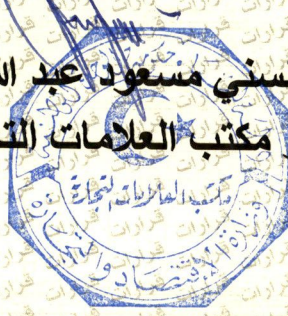 سني مسعود عبد ال
مكتب العلامات الت
مكتب العلامات التجارة
وزارة الاقتصاد والتجارة
قرارات